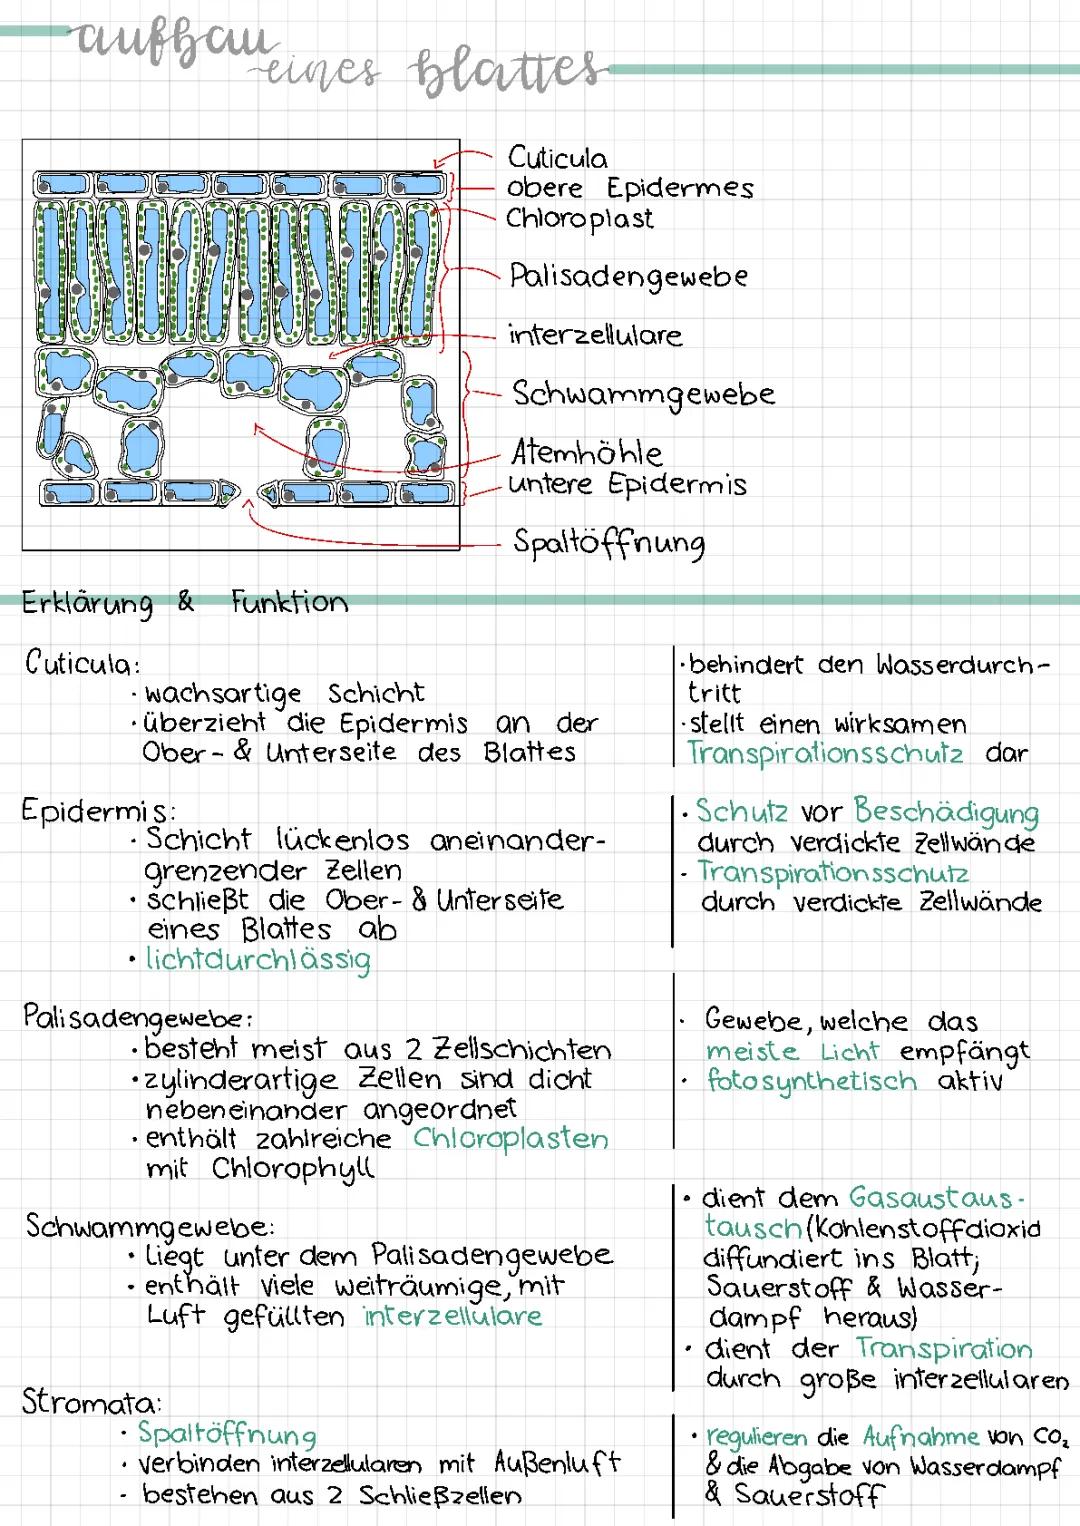 aufbau
eines blattes
Cuticula
obere Epidermes
Chloroplast
Palisadengewebe
interzellulare
Schwammgewebe
Atemhöhle
untere Epidermis
Spaltöffnung
Erklärung & Funktion
Cuticula:
· wachsartige Schicht
· überzieht die Epidermis an der
Ober- & Unterseite des Blattes
· behindert den Wasserdurch-
tritt
· stellt einen wirksamen
Transpirationsschutz dar
Epidermis:
· Schicht lückenlos aneinander-
grenzender Zellen
· schließt die Ober- & Unterseite
eines Blattes ab
· lichtdurchlässig
· Schutz vor Beschädigung
durch verdickte Zellwände
· Transpirationsschutz
durch verdickte Zellwände
Palisadengewebe:
· besteht meist aus 2 Zellschichten
· zylinderartige Zellen sind dicht
nebeneinander angeordnet
· enthält zahlreiche Chloroplasten
mit Chlorophyll
· Gewebe, welche das
meiste Licht empfängt
· fotosynthetisch aktiv
Schwammgewebe:
· Liegt unter dem Palisadengewebe
· enthält viele weiträumige, mit
Luft gefüllten interzellulare
· dient dem Gasaustaus-
tausch (Kohlenstoffdioxid
diffundiert ins Blatt;
Sauerstoff & Wasser-
dampf heraus)
· dient der Transpiration
durch große interzellularen
Stromata:
· Spaltöffnung
· verbinden interzellularen mit Außenluft
· bestehen aus 2 Schließzellen
· regulieren die Aufnahme von CO₂
& die Abgabe von Wasserdampf
& Sauerstoff